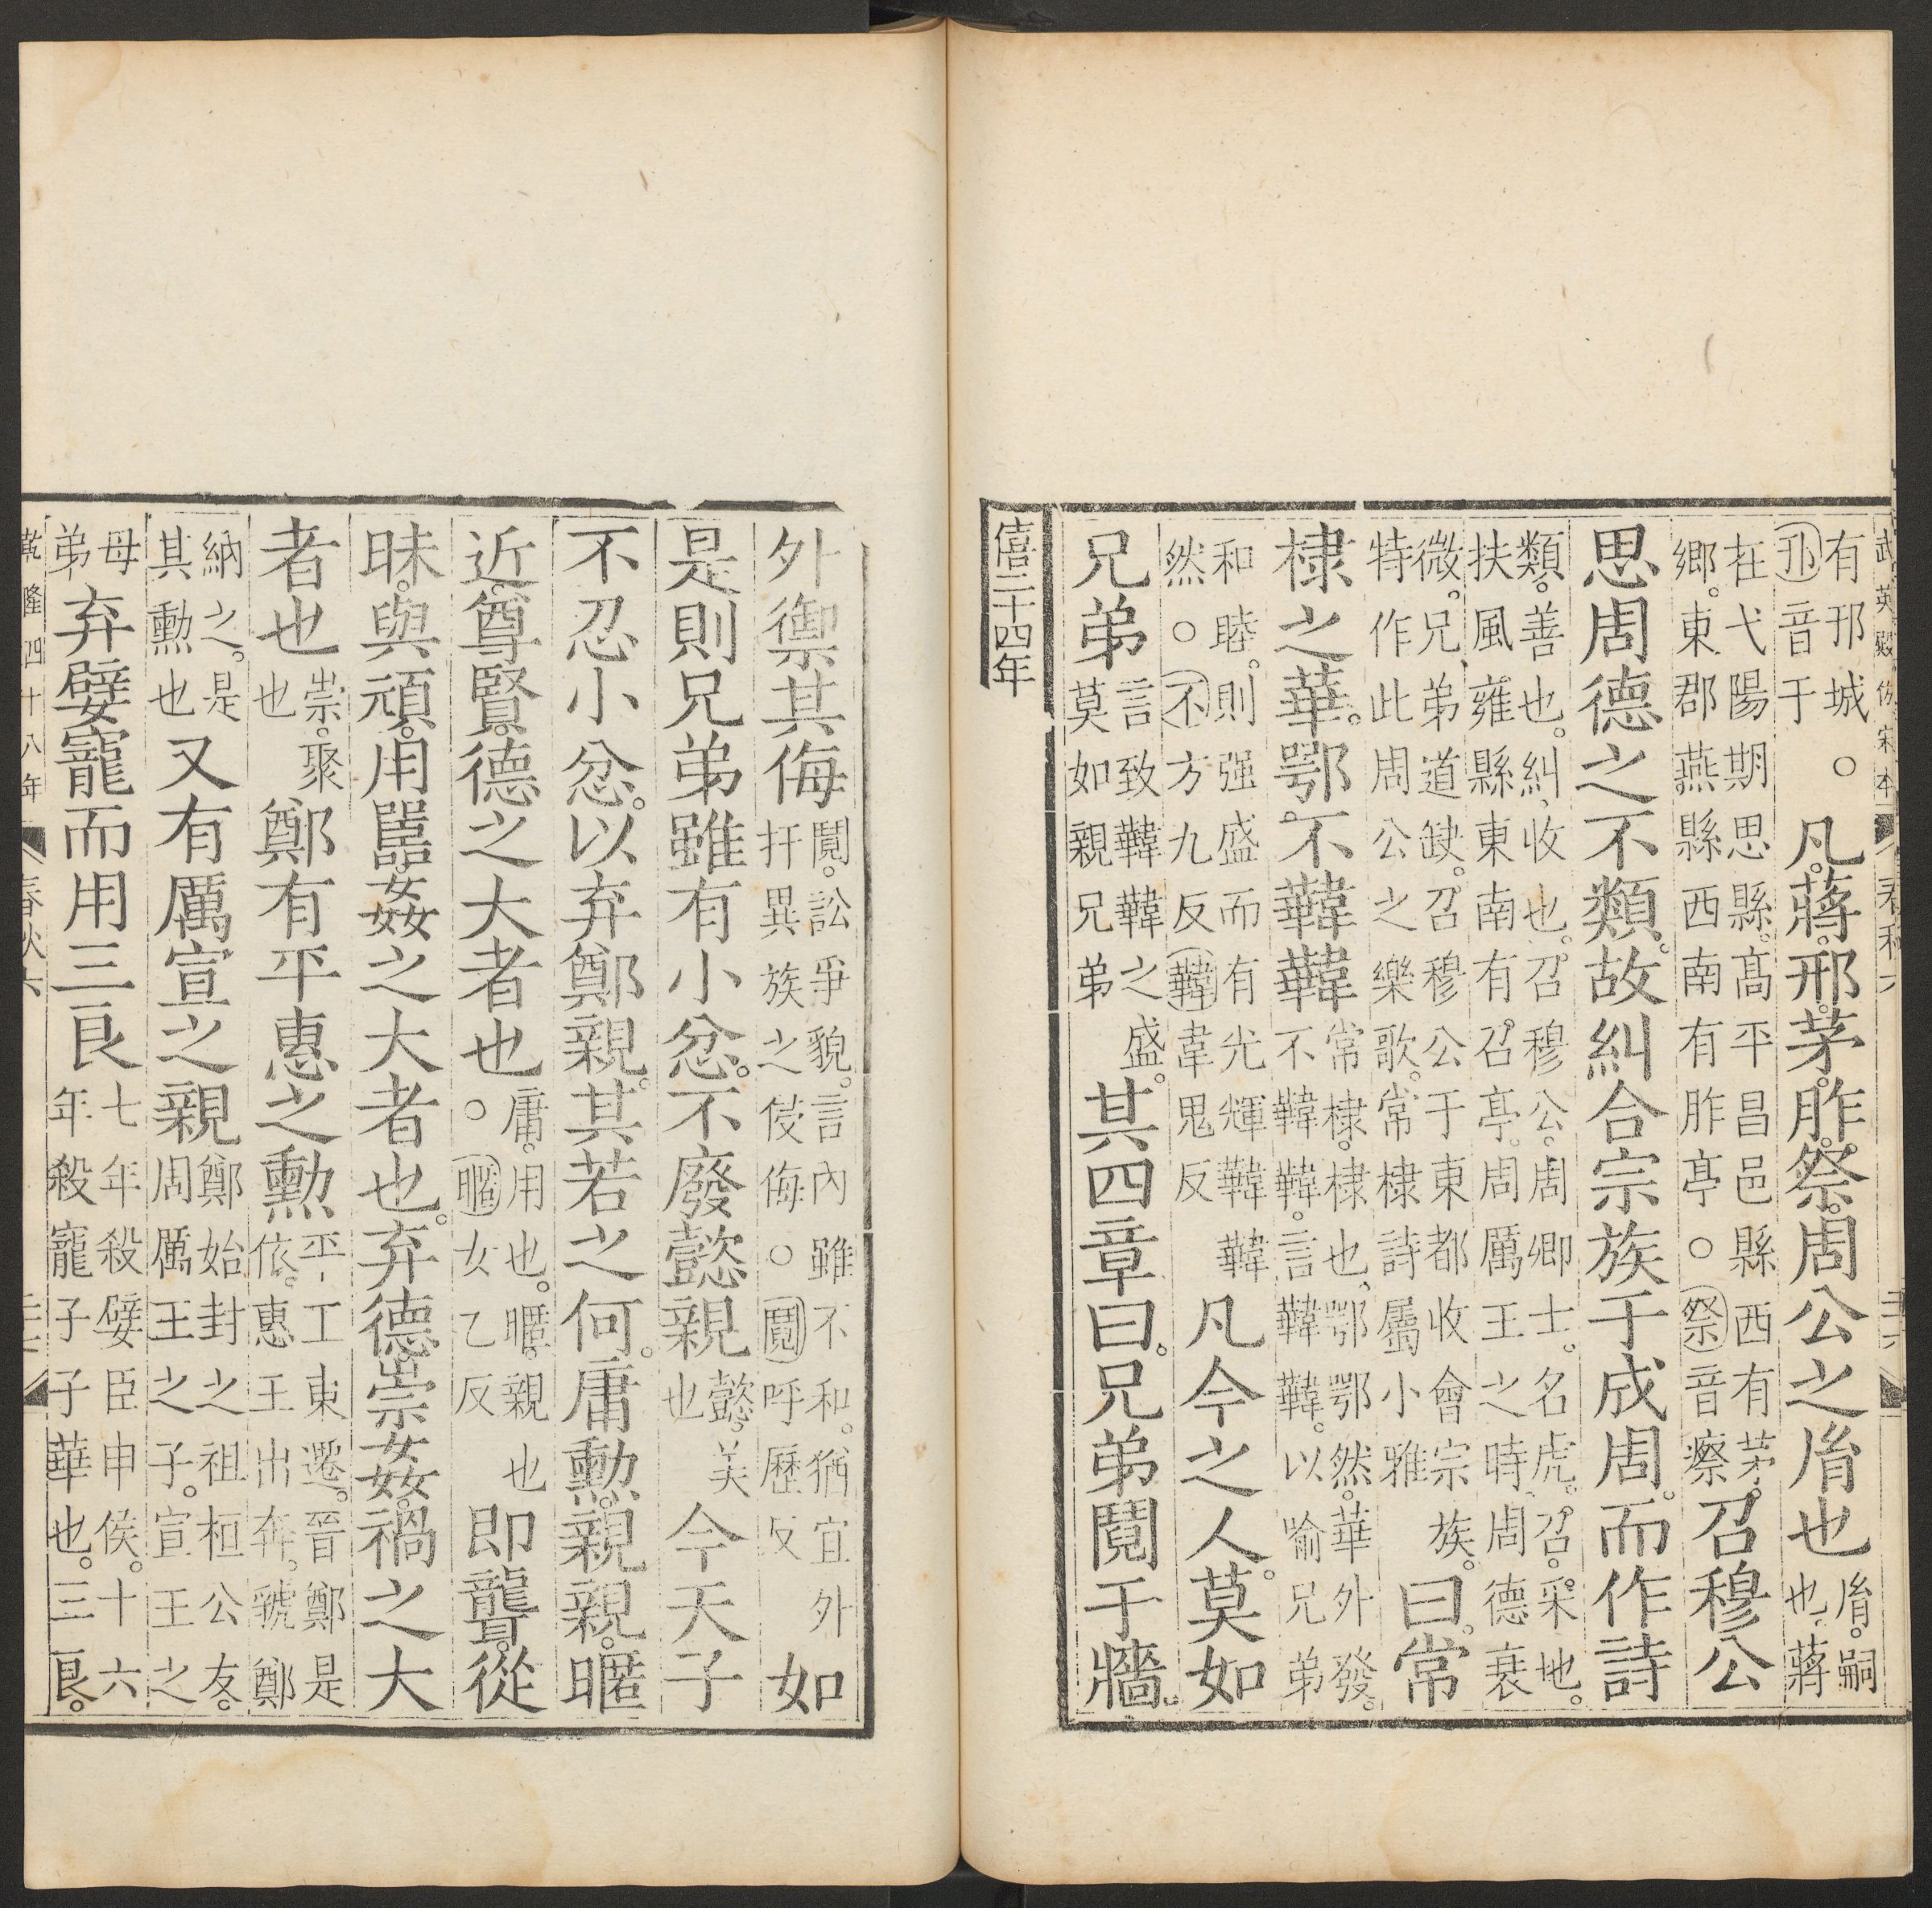 武英殿仿宋本 春秋六
有邘城○
邘音于
凡。蔣。邢。茅。胙。祭。周公之胤也
胤。嗣
也。蔣
在弋陽期思縣。高平昌邑縣西有茅
鄉。東郡燕縣西南有胙亭○祭音瘵
召穆公
思周德之不類。故糾合宗族于成周。而作詩
類。善也。糾、收也。召穆公。周卿士。名虎。召。采地。
扶風雍縣東南有召亭。周厲王之時。周德衰
微。兄弟道缺。召穆公于東都收會宗族。
特作此周公之樂歌。常棣詩屬小雅
曰。常
棣之華。鄂。不韡韡
常棣。棣也、鄂鄂然。華外發。
不韡韡。言韡韡。以喻兄弟
和睦。則强盛而有光輝韡韡
然○不方九反韡韋鬼反
凡今之人。莫如
兄弟
言致韡韡之盛。
莫如親兄弟
其四章曰。兄弟鬩于牆。
僖二十四年
外禦其侮
鬩。訟爭貌。言內雖不和。猶宜外
扞異族之侵侮○鬩呼歷反
如
是則兄弟雖有小忿。不廢懿親
懿。美
也
今天子
不忍小忿。以弃鄭親。其若之何。庸勳。親親。暱
近。尊賢。德之大者也
庸。用也。暱。親也
○暱女乙反
即聾。從
昧。與頑。用嚚。姦之大者也。弃德。崇姦。禍之大
者也
崇。聚
也
鄭有平惠之勳
平王東遷。晉鄭是
依。惠王出奔。虢鄭
納之。是
其勳也
又有厲宣之親
鄭始封之祖桓公友。
周厲王之子。宣王之
母
弟
弃嬖寵而用三良
七年殺嬖臣申侯。十六
年殺寵子子華也。三良。
乾隆四十八年 春秋六